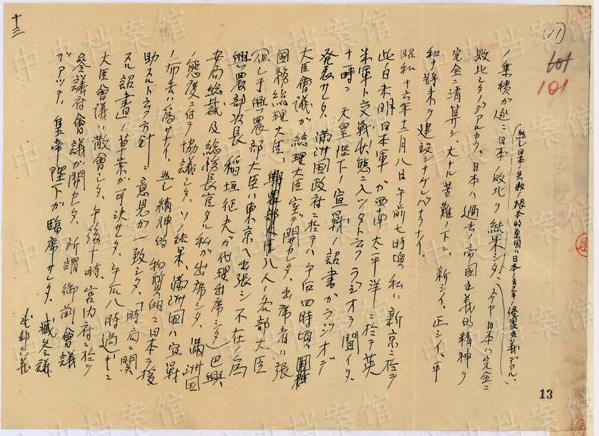 十三
(11)
101
101
ノ集積が遂ニ日本ノ敗北ヲ結果シタ、今ヤ日本ハ完全ニ
敗北シタノデアルカラ、日本ハ過去ノ帝国主義的精神ヲ
完全ニ清算シ大ナル苦難ノ下ニ、新シイ、正シイ、平
和ナ将来ヲ建設シナケレバナラナイ
昭和十六年十二月八日午前七時頃私ハ新京ニ於テ
此日未明日本軍ガ西南太平洋ニ於テ英
米軍ト交戦状態ニ入ツタトラヂオヲ聞イタ、
十一時ニ天皇陛下ノ宣戦ノ詔書ガラヂオデ
発表サレタ、満洲国政府ニ於テハ午后四時頃
大臣会議ガ総理大臣室デ開カレタ、出席者ハ張
国務総理大臣、八人ノ各部大臣
但シ于興農部大臣ハ東京ヘ出張シ不在ニ為
興農部次長稲垣征夫ガ代理出席シタ
総務長官タル私ガ出席シタ、満洲国
ノ態度ニ付テ協議シタ、ソノ結果、満洲国ハ宣戦
ノ布告ハ為サナイ、然シ精神的物質的ニ日本ヲ援
助スルト云フ方針ニ意見ガ一致シタ、「時局ニ関
スル詔書」ノ草案ガ可決サレタ、午后八時過ギニ
大臣会議ハ散会シタ、午後十時、宮内府ニ於テ
参議府会議ガ開カレタ、所謂御前会議
デアツテ、皇帝陛下ガ臨席サレタ、臧参議
武部六蔵
13
中央档案馆